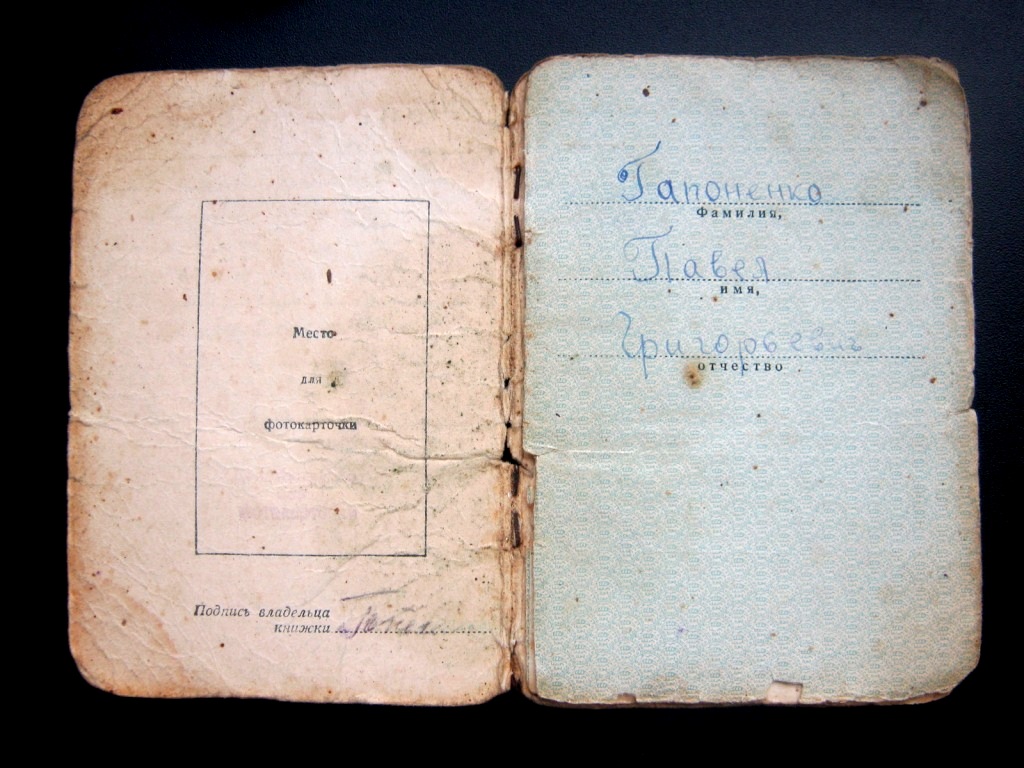 Место
для
фотокарточки
Подпись владельца
книжки
Гапоненко
Фамилия,
Павел
имя,
Григорьевич
отчество